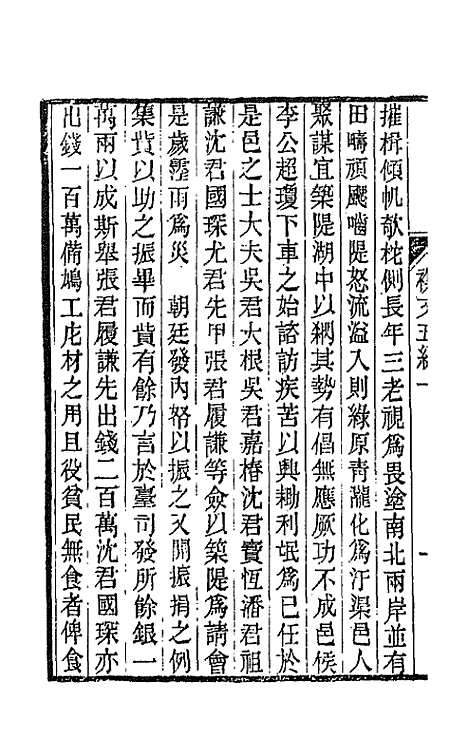 襍文五編一
一
摧楫傾帆欹柁側長年三老視爲畏塗南北兩岸並有
田疇頑飈嚙隄怒流溢入則綠原靑隴化爲汙渠邑人
聚謀宜築隄湖中以綱其勢有倡無應厥功不成邑侯
李公超瓊下車之始諮訪疾苦以興耡利氓爲已任於
是邑之士大夫吳君大根吳君嘉椿沈君寶恆潘君祖
謙沈君國琛尤君先甲張君履謙等僉以築隄爲請會
是歲霪雨爲災　朝廷發內帑以振之又開振捐之例
集貲以助之振畢而貲有餘乃言於臺司發所餘銀一
萬兩以成斯舉張君履謙先出錢二百萬沈君國琛亦
出錢一百萬備鳩工庀材之用且役貧民無食者俾食